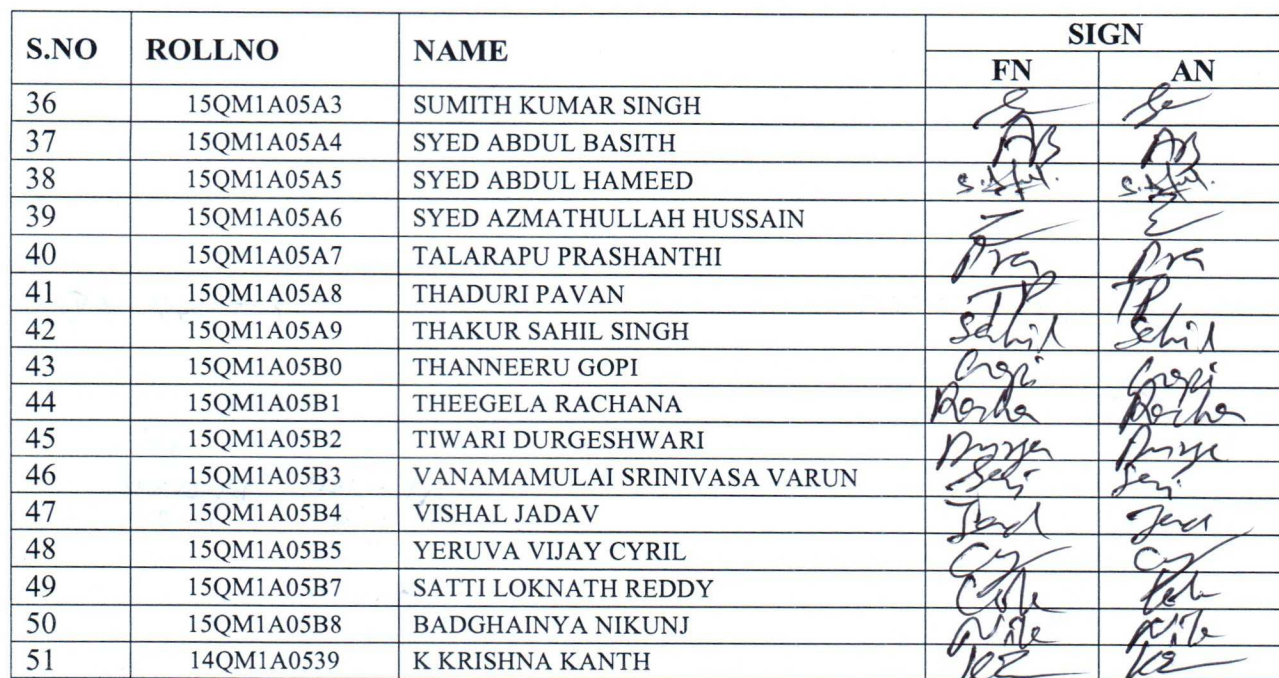 S.NO ROLLNO NAME SIGN
FN AN
36 15QM1A05A3 SUMITH KUMAR SINGH
37 15QM1A05A4 SYED ABDUL BASITH AB AB
38 15QM1A05A5 SYED ABDUL HAMEED
39 15QM1A05A6 SYED AZMATHULLAH HUSSAIN
40 15QM1A05A7 TALARAPU PRASHANTHI Pra Pra
41 15QM1A05A8 THADURI PAVAN TP TP
42 15QM1A05A9 THAKUR SAHIL SINGH Sahil Sahil
43 15QM1A05B0 THANNEERU GOPI Gopi Gopi
44 15QM1A05B1 THEEGELA RACHANA
45 15QM1A05B2 TIWARI DURGESHWARI
46 15QM1A05B3 VANAMAMULAI SRINIVASA VARUN
47 15QM1A05B4 VISHAL JADAV
48 15QM1A05B5 YERUVA VIJAY CYRIL Cy Cy
49 15QM1A05B7 SATTI LOKNATH REDDY
50 15QM1A05B8 BADGHAINYA NIKUNJ
51 14QM1A0539 K KRISHNA KANTH